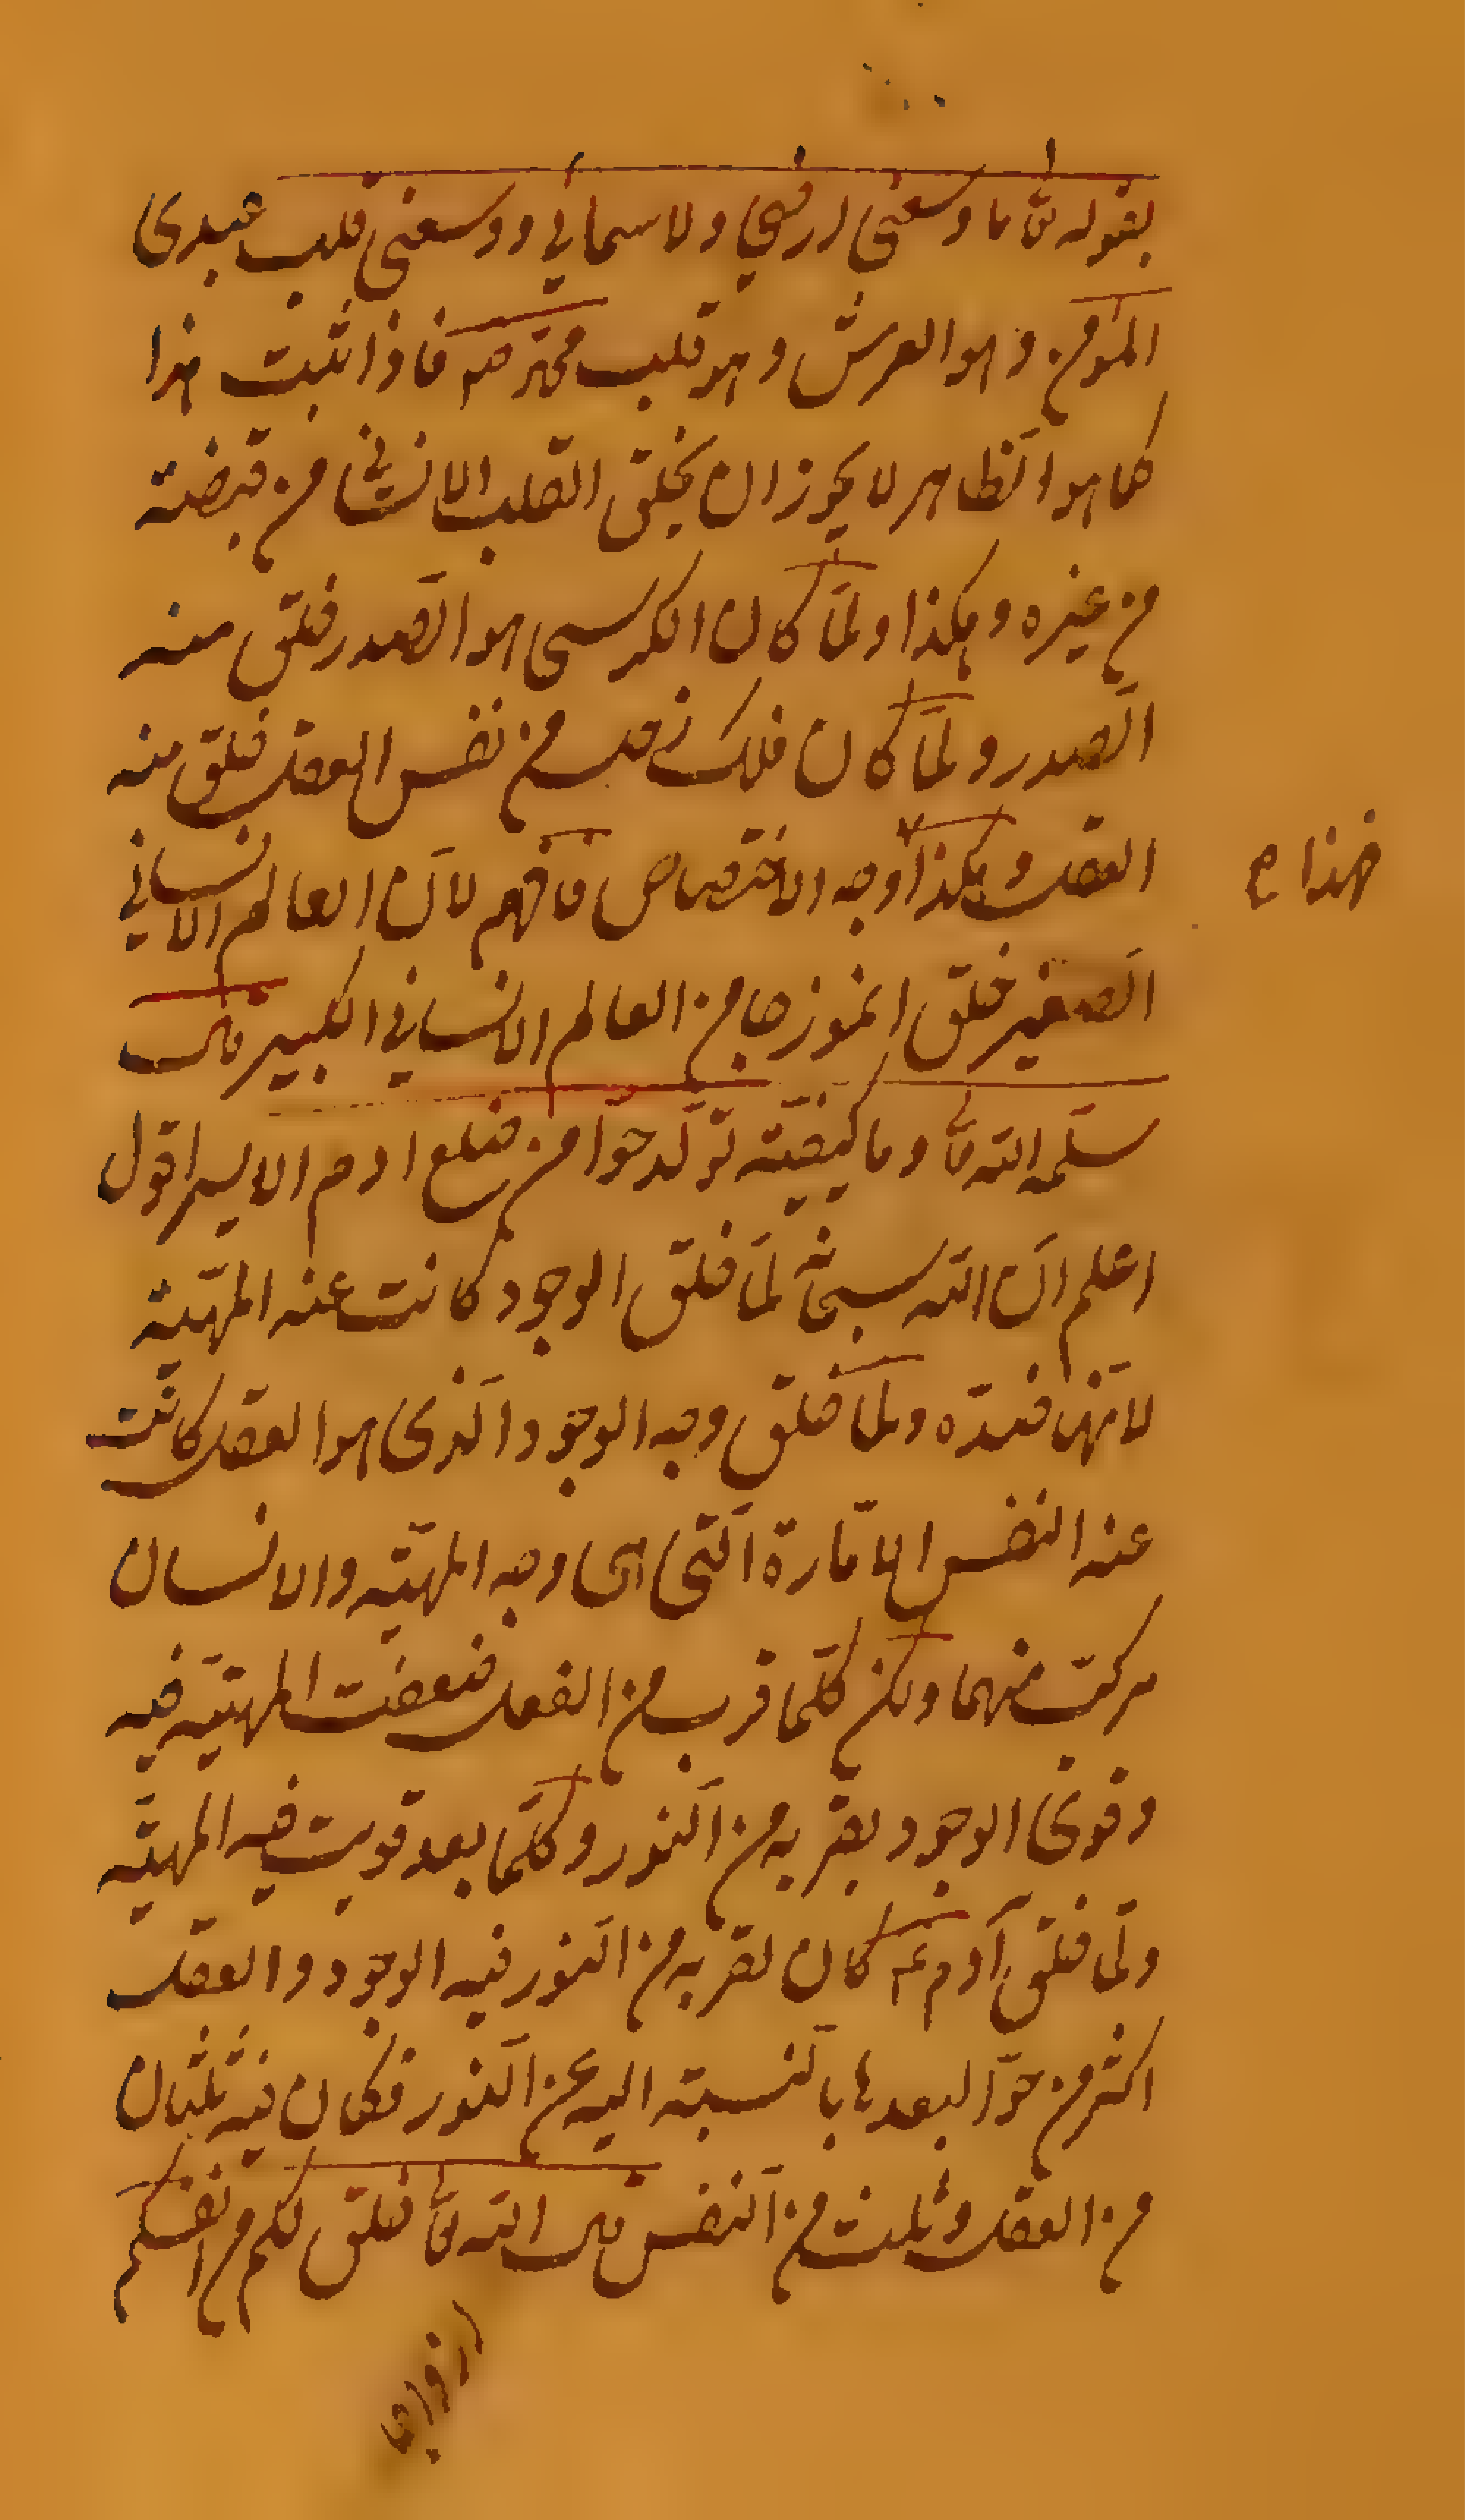 بقوله تع ما وسعني ارضي ولا سمائي ووسعني قلب عبدي
المؤمن وهو العرش وهو قلب محمد ص فاذا ثبت هذا
كما هو الظاهر لا يجوز ان يخلق القلب الانساني من قبضته
من غيره وهكذا ولما كان الكرسى هو الصدر خلق منه
الصدر ولما كان فلك زحل من نفس العقل خلق منه
العقل وهكذا وجه الاختصاص فافهم لان العالم الانساني
فهذا
الصغير خلق انموزجا من العالم الانساني الكبير قال
سلمه الله تع وما كيفيته تولد حوا من ضلع ادم الايسر اقول
اعلم ان الله سبحانه لما خلق الوجود كانت عنه المهيّة
لانها ضده ولما خلق وجه الوجود الذى هو العقل كانت
عنه النفس الامّارة التى هى وجه المهيّة والانسان
مركب منهما ولكن كلّما قرب من الفعل ضعفت المهيّة فيه
وقوى الوجود بقربه من النور وكلّما بعد قويت فيه المهيّة
ولما خلق آدم ع كان لقربه من النور فيه الوجود والعقل
اكثر من حوّا لبعدها بالنسبة اليه عن النور فكان فيه ثلثان
من العقل وثلث من النفس قال الله تع خلق لكم من انفسكم
ازواجا